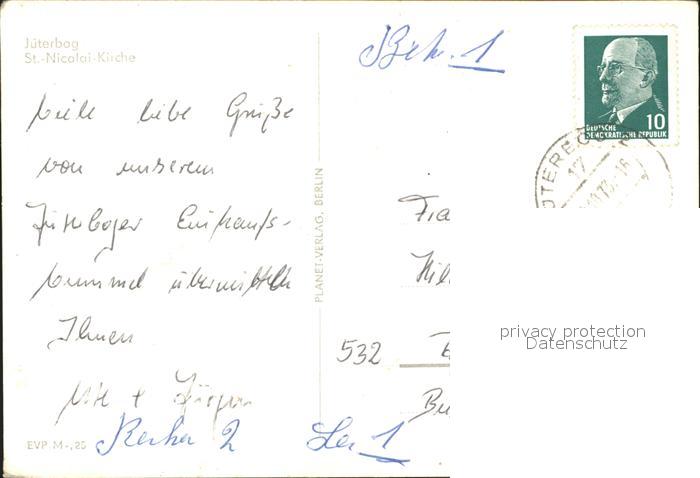 Jüterbog
St.-Nicolai-Kirche
Viele liebe Grüße
von unserem
Jüterboger Einkaufs-
bummel übermitteln
Ihnen
+ Jürgen
EVP M -,25
2
PLANET-VERLAG, BERLIN
1
DEUTSCHE
DEMOKRATISCHE REPUBLIK
10
17
532
1
privacy protection
Datenschutz